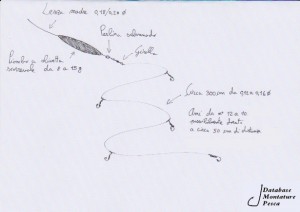 Lenza madre 0,18/0,20 Ø
Perlina salvanodo
Girella
Piombo a olivetta
scorrevole da 8 a 15 g
circa 300 cm da 0,12 a 0,16 Ø
Ami del n° 12 a 16
a circa 50 cm di distanza
Database
Montature
Pesca